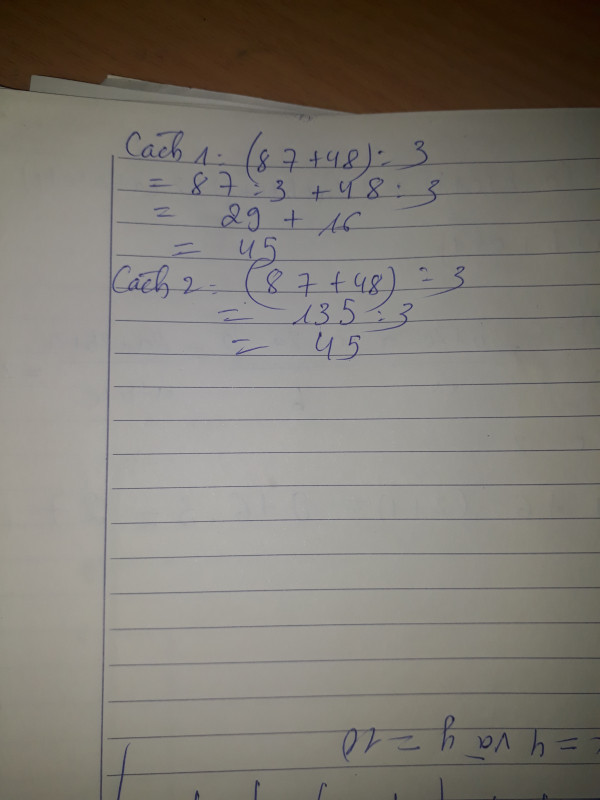 Cách 1: (87+48): 3
= 87:3 + 48:3
= 29 + 16
= 45
Cách 2: (87+48) : 3
= 135:3
= 45
= 4 và y = 10